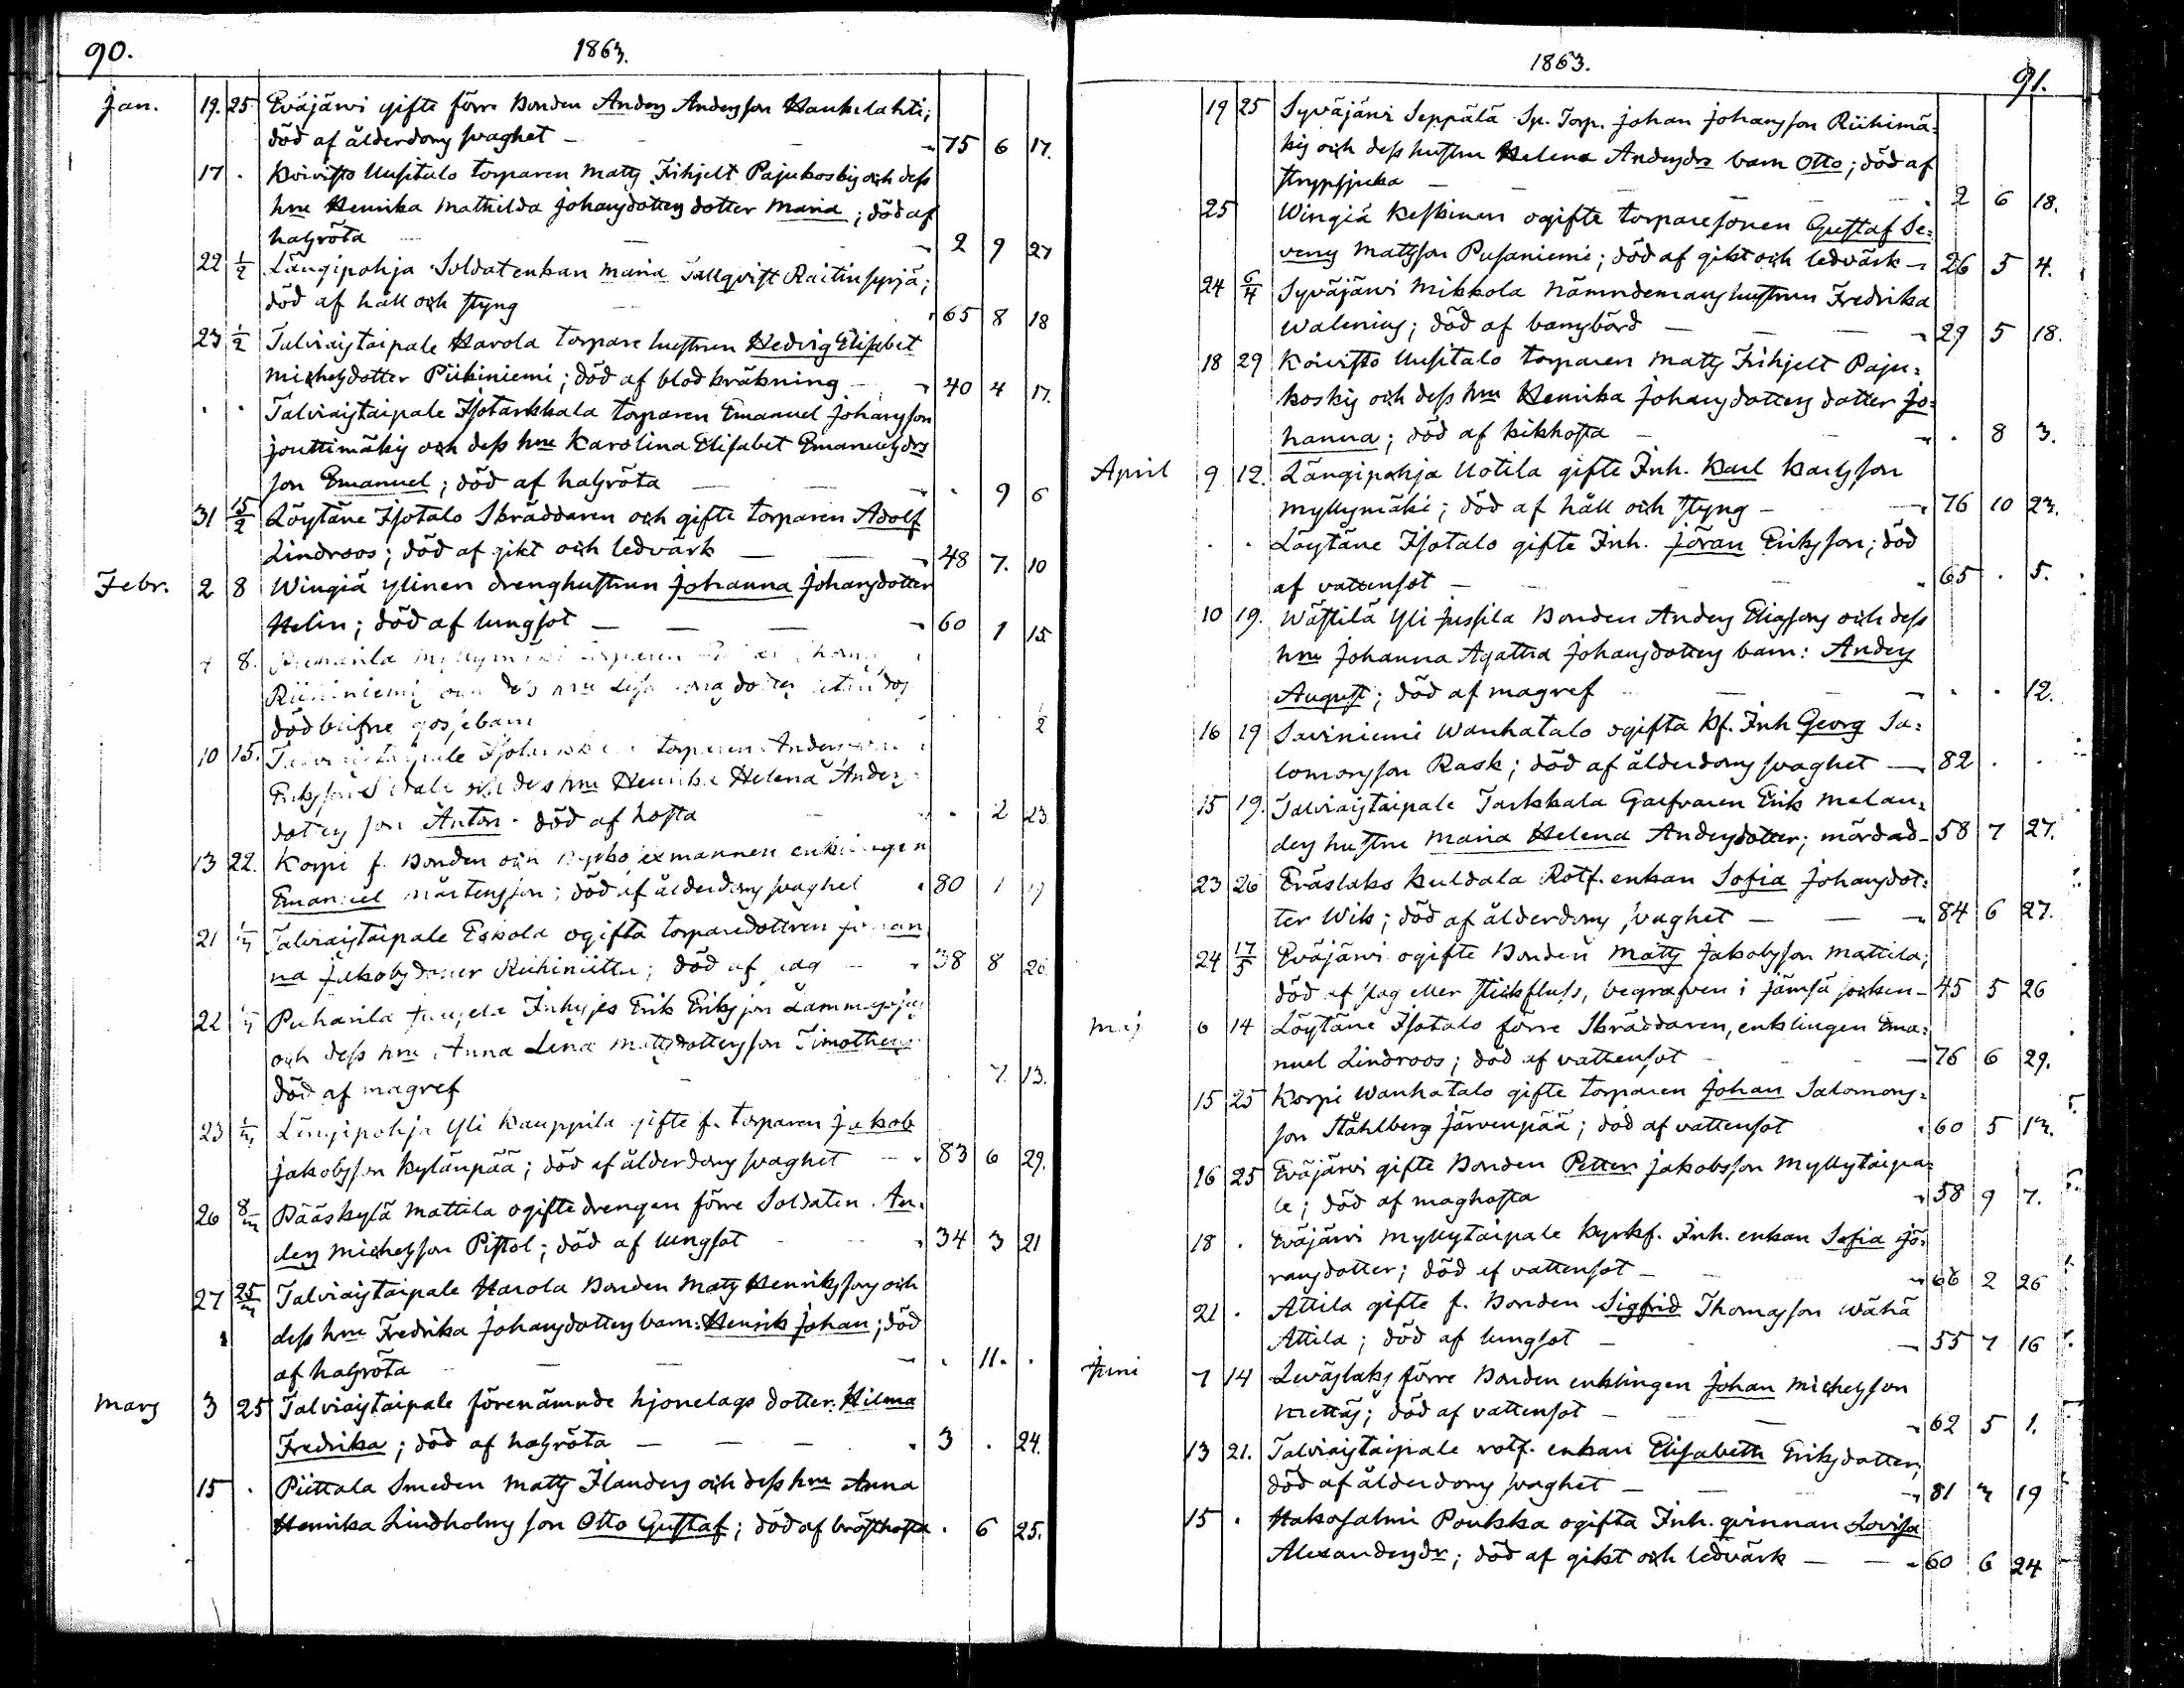 90.
1863.
Jan. 19. 25. Eväjärvi gifte förre Bonden Anders Andersson Haukilahti;
död af ålderdoms svaghet — 75 6 17.
17 . Koivisto Uusitalo torparen Matts Frihjelt Pajukoskis och dess
hru Henrika Mathilda Johansdotters dotter Maria; död af
halsröta — 2 9 27
22 1/2 Längipohja Soldatenkan Maria Tallqvist Raitinsyrjä;
död af håll och styng 65 8 18
23 1/2 Talviaistaipale Harola torpare hustrun Hedvig Elisabet
Michelsdotter Piikiniemi; död af blodkräkning 40 4 17.
. . Talviaistaipale Isotarkkala torparen Emanuel Johansson
Jouttimäkis och dess hru Karolina Elisabet Emanuelsdrs
son Emanuel; död af halsröta — . 9 6
31 15/2 Löytäne Isotalo Skräddaren och gifte torparen Adolf
Lindroos; död af gikt och ledvärk — 48 7. 10
Febr. 2 8 Wingiä Ylinen drenghustrun Johanna Johansdotter
Helin; död af lungsot — 60 1 15
8. Puharila
Riihiniemis
dödblifne gossebarn 1/2
10 15. Talviaistaipale torparen Anders
Eriksson och dess hru Henrika Helena Anders
dotters son Anton. död af hosta . 2 23
13 22. Korpi f. Bonden och enklingen
Emanuel Mårtensson; död af ålderdoms svaghet 80 1
21 Talviaistaipale Eskola ogifta torparedottren Johan
na Jakobsdotter Riihiniittu; död af slag — 38 8 26.
22 Puharila Inhyses Erik Erikssson
och dess hru Anna Lena Mattsdotters son Timotheus
död af magref — 7. 13.
23 Längipohja Yli Kauppila gifte f. torparen Jakob
Jakobsson Kylänpää; död af ålderdoms svaghet — 83 6 29.
26 8/3 Pääskylä Mattila ogifte drengen förre Soldaten An-
ders Michelsson Pistol; död af lungsot 34 3 21
27 25/3 Talviaistaipale Harola Bonden Matts Henrikssons och
dess hru Fredrika Johansdotters barn: Henrik Johan; död
af halsröta — . 11. .
Mars 3 25 Talviaistaipale förenämnde hjonelags dotter Hilma
Fredrika; död af halsröta — 3 . 24.
15 . Piittala Smeden Matts Flanders och dess hru Anna
Henrika Lindholms son Otto Gustaf; död af brösthosta . 6 25.
1863.
91.
19 25 Syväjärvi Seppälä Sp. Torp. Johan Johansson Riihimä-
kis och dess hustru Helena Andersdrs barn Otto; död af
strypsjuka — 2 6 18.
25 Wingiä Keskinen ogifte torparesonen Gustaf Se-
verus Mattsson Pusaniemi; död af gikt och ledvärk — 26 5 4.
24 6/4 Syväjärvi Mikkola Nämndemans hustrun Fredrika
Walenius; död af barnsbörd — 29 5 18.
18 29 Koivisto Uusitalo torparen Matts Frihjelt Paju-
koskis och dess hru Henrika Johansdotters dotter Jo-
hanna; död af kikhosta — . 8 3.
April 9 12. Längipohja Uotila gifte Inh. Karl Karlsson
Myllymäki; död af håll och styng — 76 10 23.
. . Löytäne Isotalo gifte Inh. Jöran Eriksson; död
af vattensot — 65 . 5.
10 19. Wästilä Yli Jussila Bonden Anders Eliassons och dess
hru Johanna Agatha Johansdotters barn: Anders
August; död af magref — . . 12.
16 19 Saviniemi Wanhatalo ogifta kf. Inh Georg Sa-
lomonsson Rask; död af ålderdoms svaghet — 82 . .
15 19. Talviaistaipale Tarkkala Garfvaren Erik Melan-
ders hustru Maria Helena Andersdotter; mördad — 58 7 27.
23 26 Eräslaks Kuldala Rotf. enkan Sofia Johansdot-
ter Wik; död af ålderdoms svaghet — 84 6 27.
24 17/5 Eväjärvi ogifte Bonden Matts Jakobsson Mattila;
död af slag eller stickfluss, begrafven i Jämsä socken — 45 5 26
Maj 6 14 Löytäne Isotalo förre Skräddaren, enklingen Ema-
nuel Lindroos; död af vattensot — 76 6 29.
15 25 Korpi Wanhatalo gifte torparen Johan Salomons-
son Ståhlberg Järvenpää; död af vattensot 60 5 13.
16 25 Eväjärvi gifte Bonden Petter Jakobsson Myllytaipa-
le; död af maghosta 58 9 7.
18 . Eväjärvi Myllytaipale kyrkf. Inh. enkan Sofia Jö-
ransdotter; död af vattensot — 66 2 26
21 . Attila gifte f. Bonden Sigfrid Thomasson Wähä
Attila; död af lungsot — 55 7 16
Juni 7 14 Leväslaks förre Bonden enklingen Johan Michelsson
död af vattensot — 62 5 1.
13 21. Talviaistaipale rotf. enkan Elisabeth Eriksdotter;
död af ålderdoms svaghet — 81 3 19
15 . Hakosalmi Poukka ogifta Inh. qvinnan Lovisa
Alexandersdr; död af gikt och ledvärk — 60 6 24